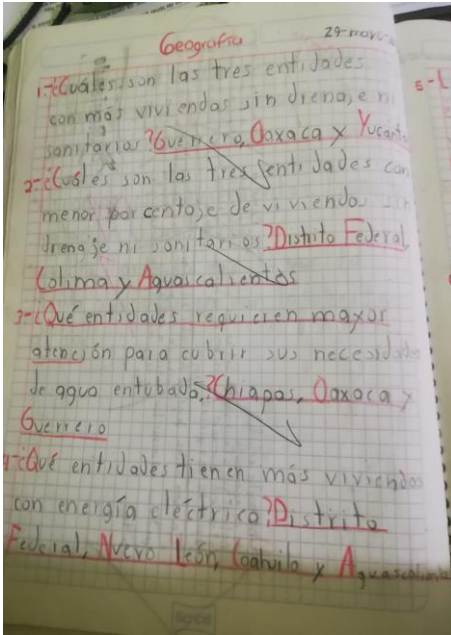 Geografía
1-¿Cuáles son las tres entidades
con más viviendas sin drenaje ni
sanitarios?Guerrero, Oaxaca y
2-¿Cuáles son las tres entidades con
menor porcentaje de viviendas sin
drenaje ni sanitarios?Distrito Federal,
Colima y Aguascalientes
3-¿Qué entidades requieren mayor
atención para cubrir sus necesidades
de agua entubada?Chiapas, Oaxaca y
Guerrero
4-¿Qué entidades tienen más viviendas
con energía eléctrica?Distrito
Federal, Nuevo León, Coahuila y Aguascalientes
5-